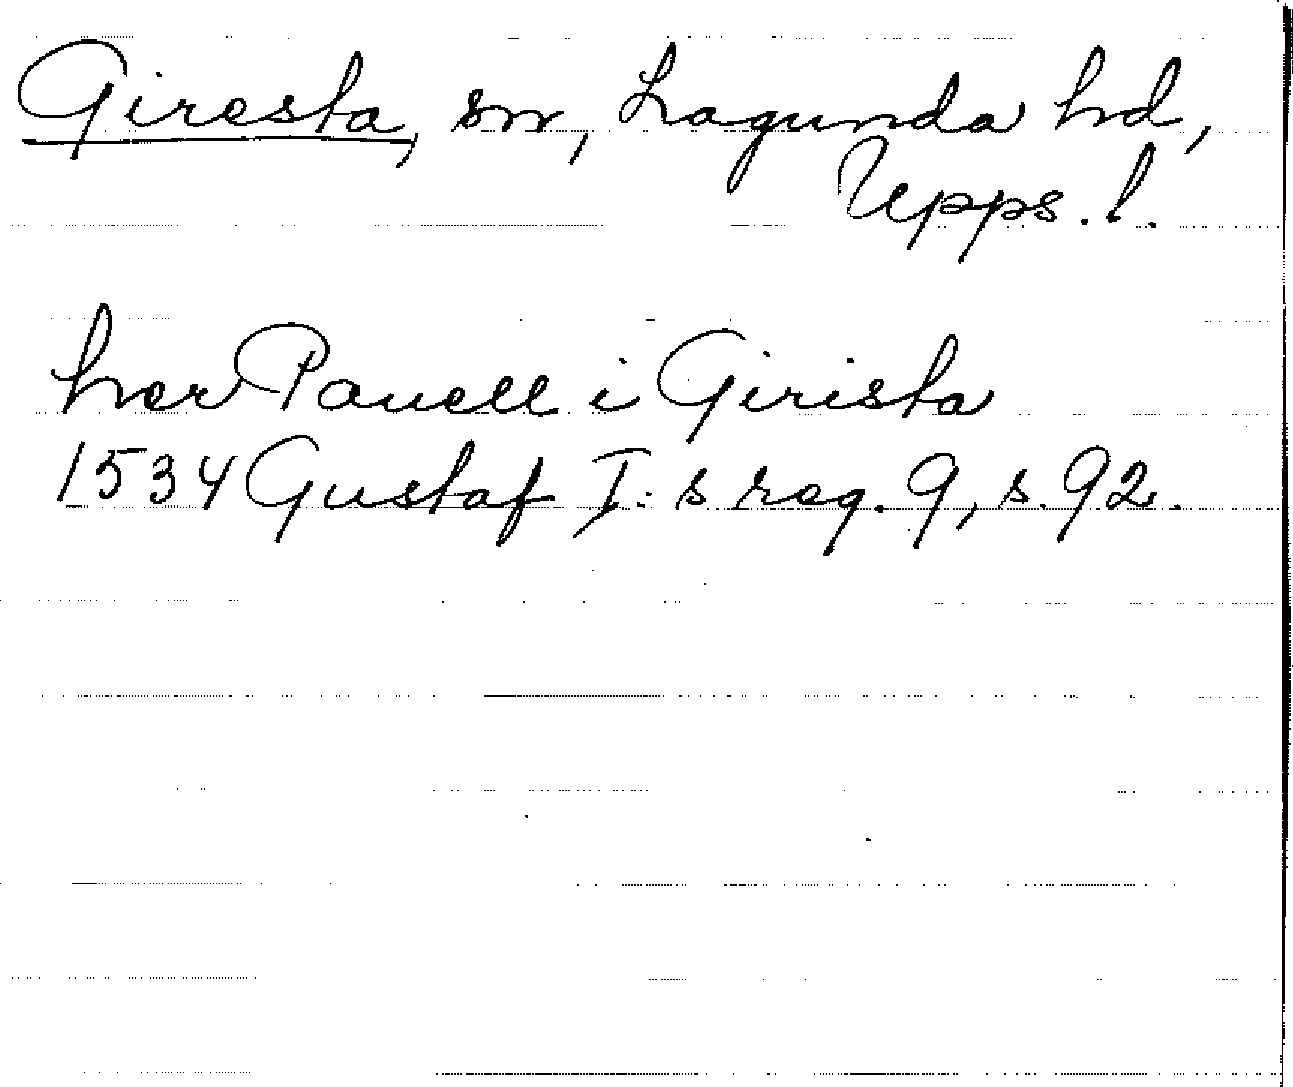 Giresta, sn, Lagunda hd,
Upps. l.
her Pauell i Girista
1534 Gustaf I:s reg. 9, s. 92.